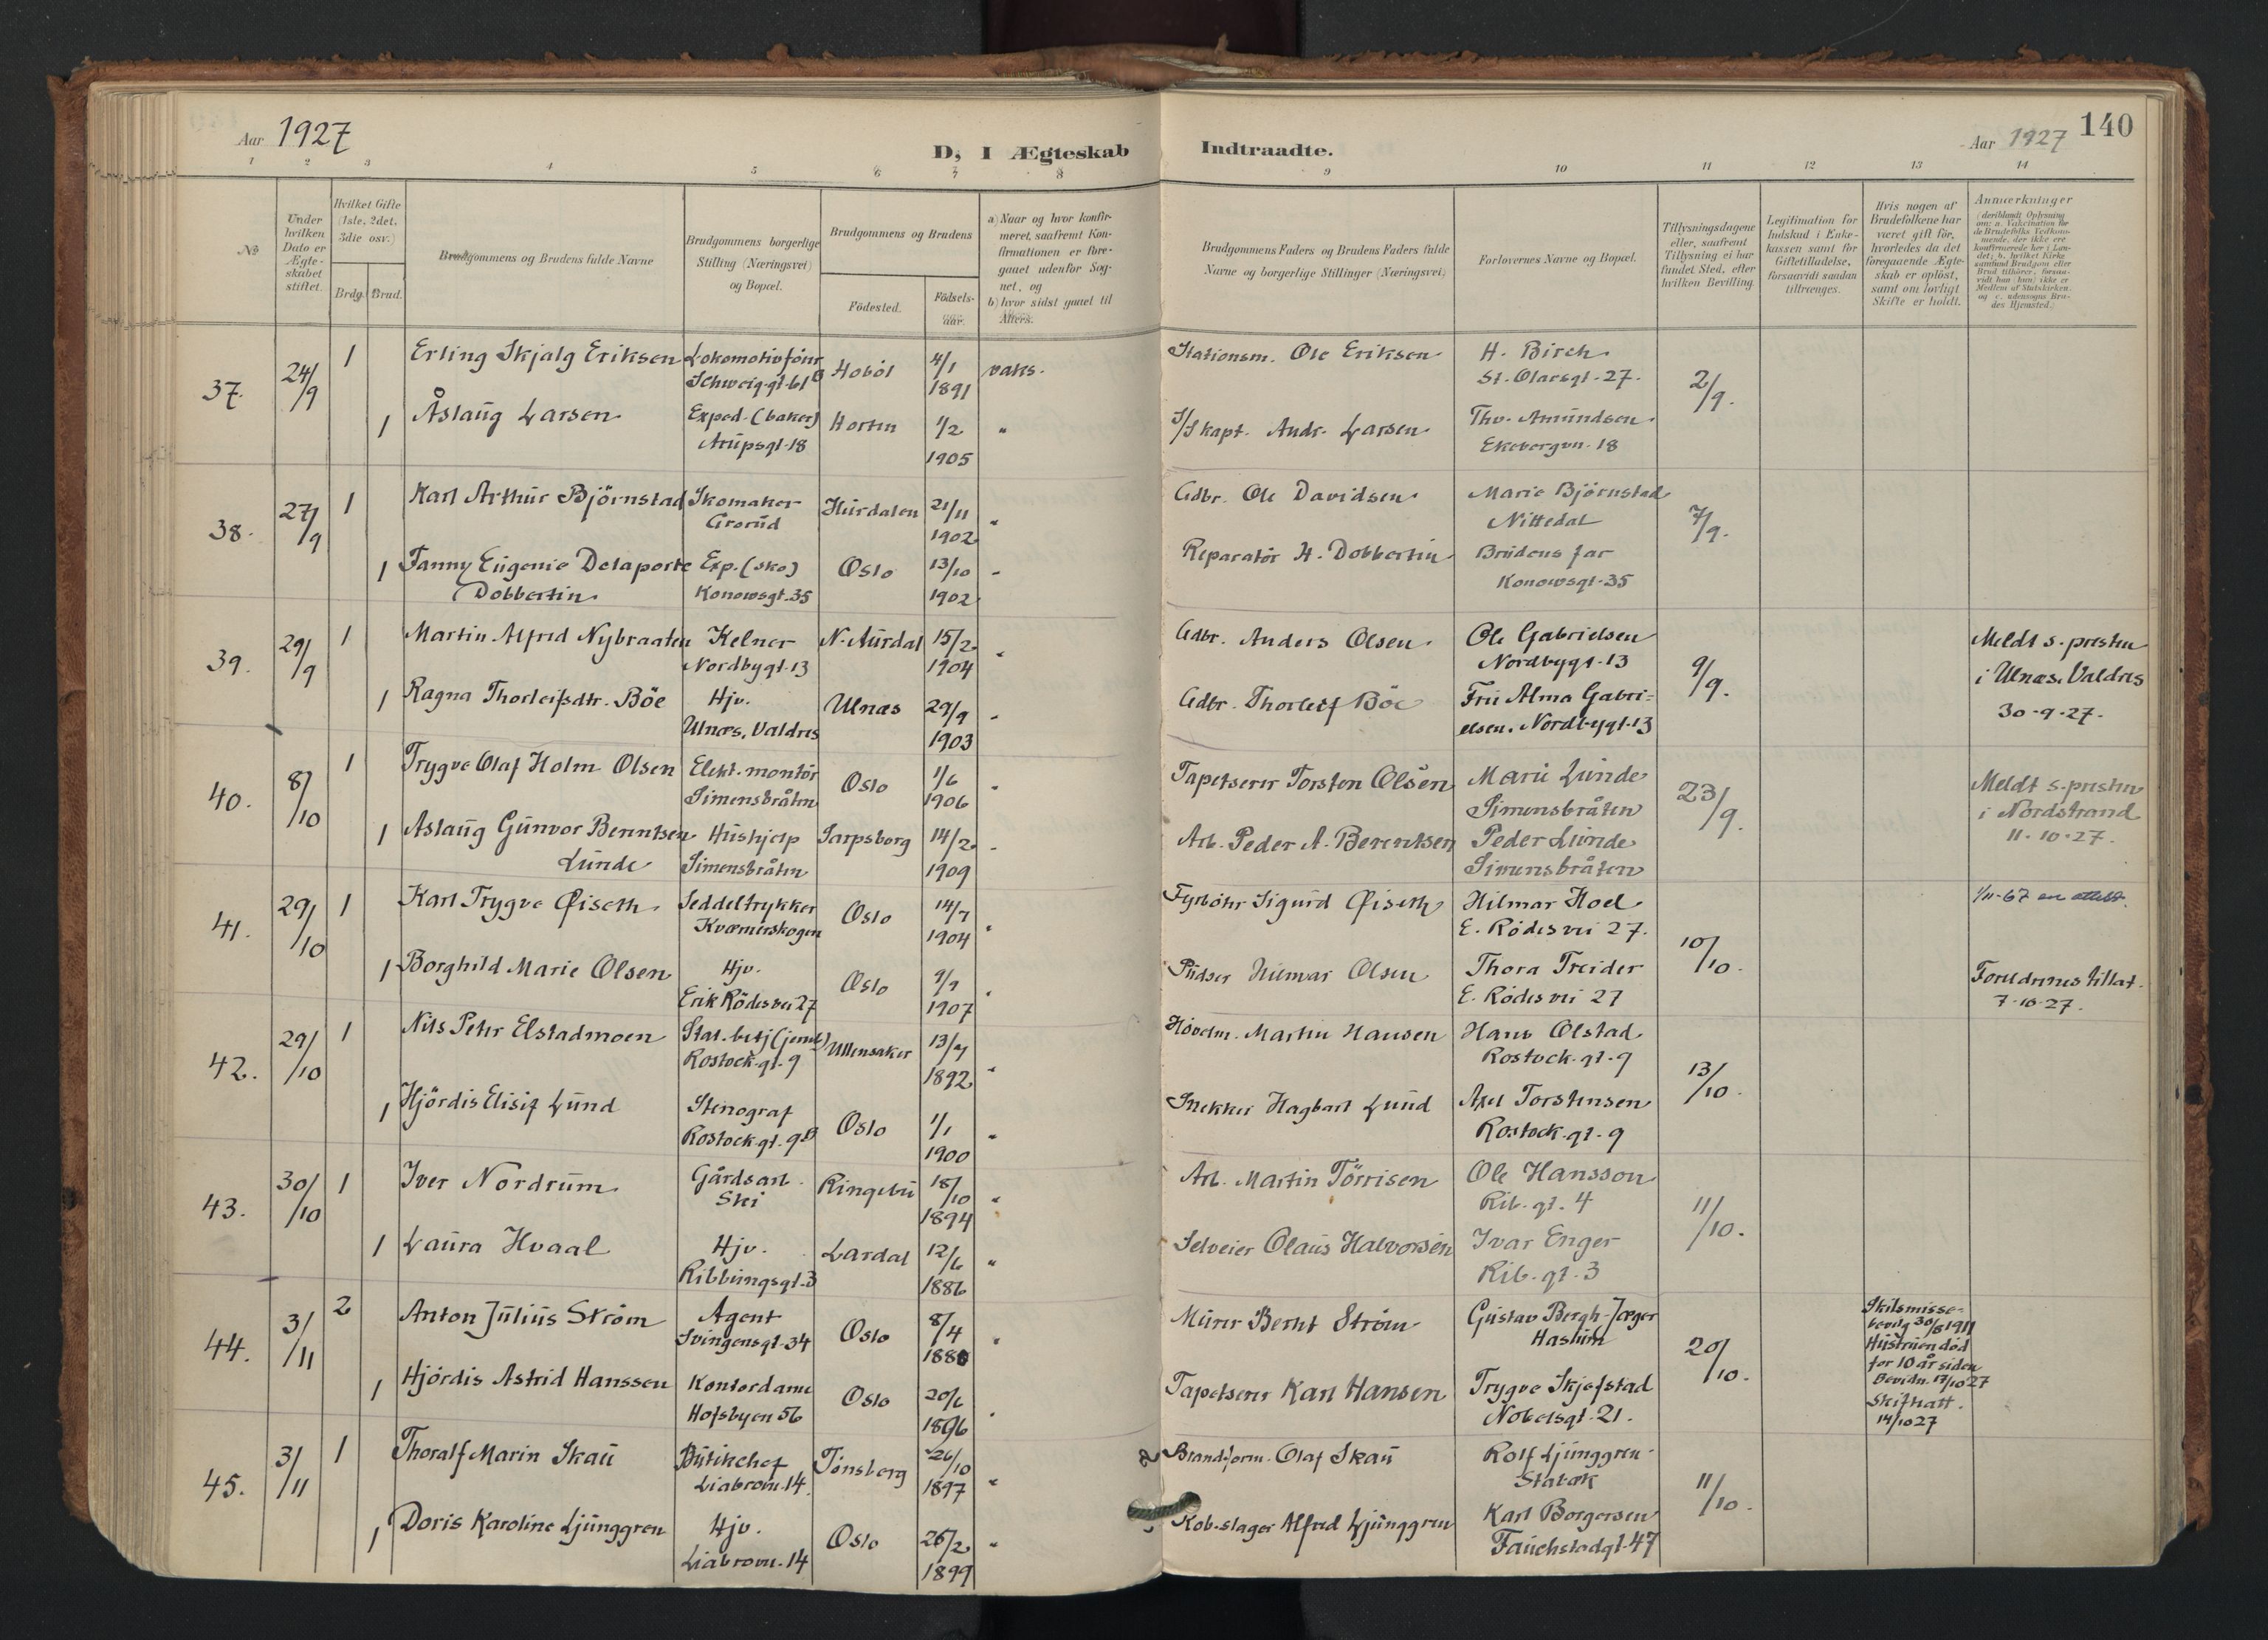 Aar 1927
D, I Ægteskab Indtraadte.
Aar 1927
140
1 2 3 4 5 6 7 8 9 10 11 12 13 14
No
Under hvilken Dato er Ægteskabet stiftet.
Hvilket Gifte (1ste, 2det, 3die osv.)
Brdg. Brud.
Brudgommens og Brudens fulde Navne
Brudgommens borgerlige Stilling (Næringsvei) og Bopæl.
Brudgommens og Brudens
Födested.
Födselsaar.
a) Naar og hvor konfirmeret, saafremt Konfirmationen er foregaaet udenfor Sognet, og
b) hvor sidst gaaet til Alters.
Brudgommens Faders og Brudens Faders fulde Navne og borgerlige Stillinger (Næringsvei)
Forlovernes Navne og Bopæl.
Tillysningsdagene eller, saafremt Tillysning ei har fundet Sted, efter hvilken Bevilling.
Legitimation for Indskud i Enkekassen samt for Giftetilladelse, forsaavidt saadan tiltrænges.
Hvis nogen af Brudefolkene har været gift för, hvorledes da det foregaaende Ægteskab er oplöst, samt om lovligt Skifte er holdt.
Anmærkninger (deriblandt Oplysning om: a. Vakcination for de Brudefolks Vedkommende, der ikke ere konfirmerede her i Landet; b. hvilket Kirkesamfund Brudgom eller Brud tilhörer, forsaavidt han (hun) ikke er Medlem af Statskirken, og c. udensogns Brudes Hjemsted.)
37. 24/9 1 Erling Skjalg Eriksen Lokomotivfönr Hoböl 4/1 vaks. Stationsm. Ole Eriksen H. Birch
Schweig.gt. 61B 1891 St. Olavsgt. 27. 2/9.
1 Åslaug Larsen Exped. (baker) Horten 1/2 " S/Skapt. Andr. Larsen Thv. Amundsen
Arupsgt. 18 1905 Ekebergvn. 18
38. 27/9 1 Karl Arthur Björnstad Skomaker Hurdalen 21/11 " Gdbr. Ole Davidsen Marie Björnstad
Grorud 1902 Nittedal 7/9.
1 Fanny Eugenie Delaporte Exp. (sko) Oslo 13/10 " Reparatör H. Dobbertin Brudens far
Dobbertin Konowsgt. 35 1902 Konowsgt. 35
39. 29/9 1 Martin Alfred Nybraaten Kelner N. Aurdal 15/2 " Gdbr. Anders Olsen Ole Gabrielsen Meldt s.presten
Nordbygt. 13 1904 Nordbygt. 13 9/9. i Ulnæs, Valdres
1 Ragna Thorleifsdtr. Böe Hjv. Ulnæs 29/9 " Gdbr. Thorleif Böe Fru Alma Gabri- 30-9-27.
Ulnæs, Valdres 1903 elsen. Nordbygt. 13
40. 8/10 1 Trygve Olaf Holm Olsen Elekt. montör Oslo 1/6 " Tapetserer Torsten Olsen Marie Lunde Meldt s.presten
Simensbråten 1906 Simensbråten 23/9. i Nordstrand
1 Aslaug Gunvor Berntsen Hushjelp Sarpsborg 14/2 " Arb. Peder A. Berentsen Peder Lunde 11-10-27.
Lunde Simensbråten 1909 Simensbråten
41. 29/10 1 Karl Trygve Øiseth Seddeltrykker Oslo 14/7 " Fyrböter Sigurd Øiseth Hilmar Hoel 1/11-67 en attest.
Kværnerskogen 1904 E. Rödes vei 27. 10/10.
1 Borghild Marie Olsen Hjv. Oslo 9/9 " Pudser Hilmar Olsen Thora Treider Foreldrenes tillat.
Erik Rödes vei 27 1907 E. Rödes vei 27 7-10-27.
42. 29/10 1 Nils Peter Elstadmoen Stat. betj (jernb) Ullensaker 13/7 " Hövelm. Martin Hansen Hans Olstad
Rostock.gt. 9 1892 Rostock.gt. 9 13/10.
1 Hjördis Elisif Lund Stenograf Oslo 1/1 " Snekker Hagbart Lund Axel Torstensen
Rostock.gt. 9B 1900 Rostock.gt. 9
43. 30/10 1 Iver Nordrum Gårdsarb. Ringebu 18/10 " Arb. Martin Törrisen Ole Hansson
Ski 1894 Rib.gt. 4 11/10.
1 Laura Hvaal Hjv. Lardal 12/6 " Selveier Olaus Halvorsen Ivar Enger
Ribbungsgt. 3 1886 Rib.gt. 3
44. 3/11 2 Anton Julius Ström Agent Oslo 8/4 " Murer Bernt Ström Gustav Bergh-Jæger Skilsmisse-
Svingensgt. 34 1880 Haslum 20/10. bevilg 30/8 1911
Hustruen död
for 10 år siden
1 Hjördis Astrid Hanssen Kontordame Oslo 20/6 " Tapetserer Karl Hansen Trygve Skjefstad Bevidn. 17/10 27
Hofsbyen 56 1896 Nobelsgt. 21. Skifteatt.
14/10 27
45. 3/11 1 Thoralf Marin Skau Butikchef Tönsberg 26/10 " Brandform. Olaf Skau Rolf Ljunggren
Liabrovn. 14. 1897 Stabæk 11/10.
1 Doris Karoline Ljunggren Hjv. Oslo 26/2 " Kob.slager Alfred Ljunggren Karl Borgersen
Liabrovn. 14 1899 Fauchaldsgt. 47